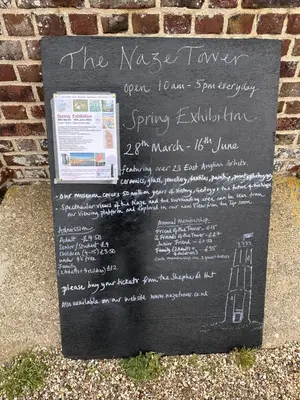 The Naze Tower
open 10am - 5pm everyday
Spring Exhibition
28th March - 16th June
featuring over 23 East Anglian Artists
ceramics, glass, jewellery, textiles, painting, printing
Our museum covers 50 million years of history, geology & the future of the Naze
Spectacular views of the Naze and the surrounding area can be seen from
our viewing platform and explored in our new View from the Top room
Admission
Adult - £4.50
Senior/Student £4
Children (4-15) £3.50
under 4's Free
Family
£12
Annual membership
Friend of the Tower - £15
2 Friends of the Tower - £27
Junior Friend -
Family (2 adults +
- £35
Each membership inc 2 guest tickets
please buy your tickets from the Shepherds Hut
Also available on our website www.nazetower.co.uk